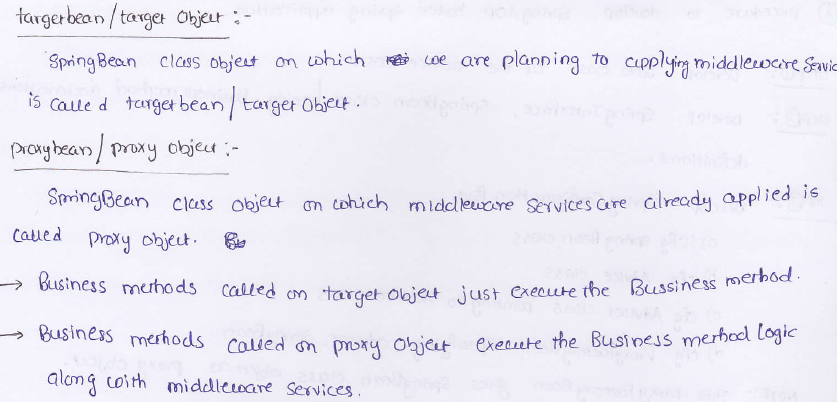 targetbean/target Object :-
SpringBean class object on which we are planning to applying middleware Servic
is called targetbean/target Object.
proxybean/proxy object :-
SpringBean class object on which middleware services are already applied is
called proxy object.
→ Business methods called on target object just execute the Bussiness method.
→ Business methods called on proxy object execute the Business method logic
along with middleware services.